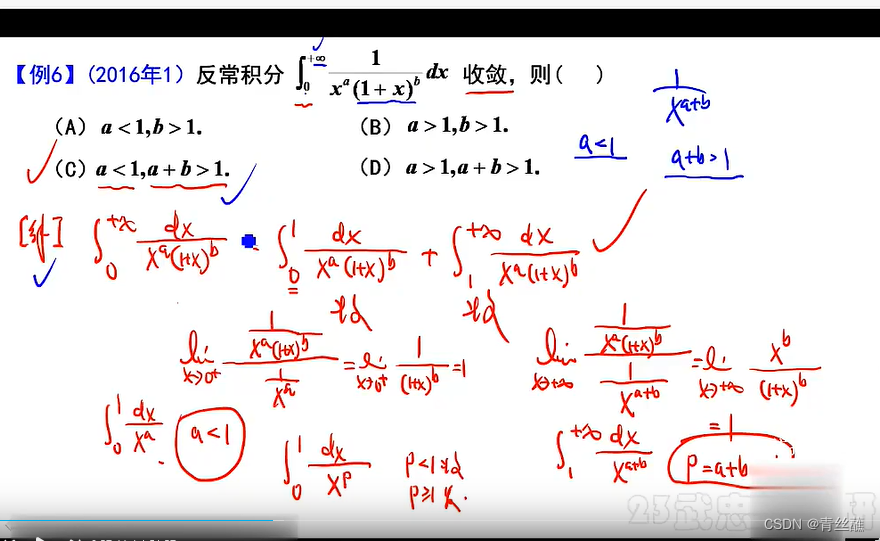 【例6】(2016年1) 反常积分 ∫₀^{+∞} 1/(x^a(1+x)^b) dx 收敛，则( )
1/x^{a+b}
(A) a<1,b>1. (B) a>1,b>1.
a<1 a+b>1
(C) a<1,a+b>1. (D) a>1,a+b>1.
[解] ∫₀^{+∞} dx/(x^a(1+x)^b) = ∫₀^1 dx/(x^a(1+x)^b) + ∫₁^{+∞} dx/(x^a(1+x)^b)
收 收
lim_{x→0⁺} (1/(x^a(1+x)^b))/(1/x^a) = lim_{x→0⁺} 1/(1+x)^b = 1 lim_{x→+∞} (1/(x^a(1+x)^b))/(1/x^{a+b}) = lim_{x→+∞} x^b/(1+x)^b
= 1
∫₀^1 dx/x^a a<1 ∫₀^1 dx/x^p p<1 收 ∫₁^{+∞} dx/x^{a+b} p=a+b
p≥1 发.
23武忠
CSDN @青丝蘸